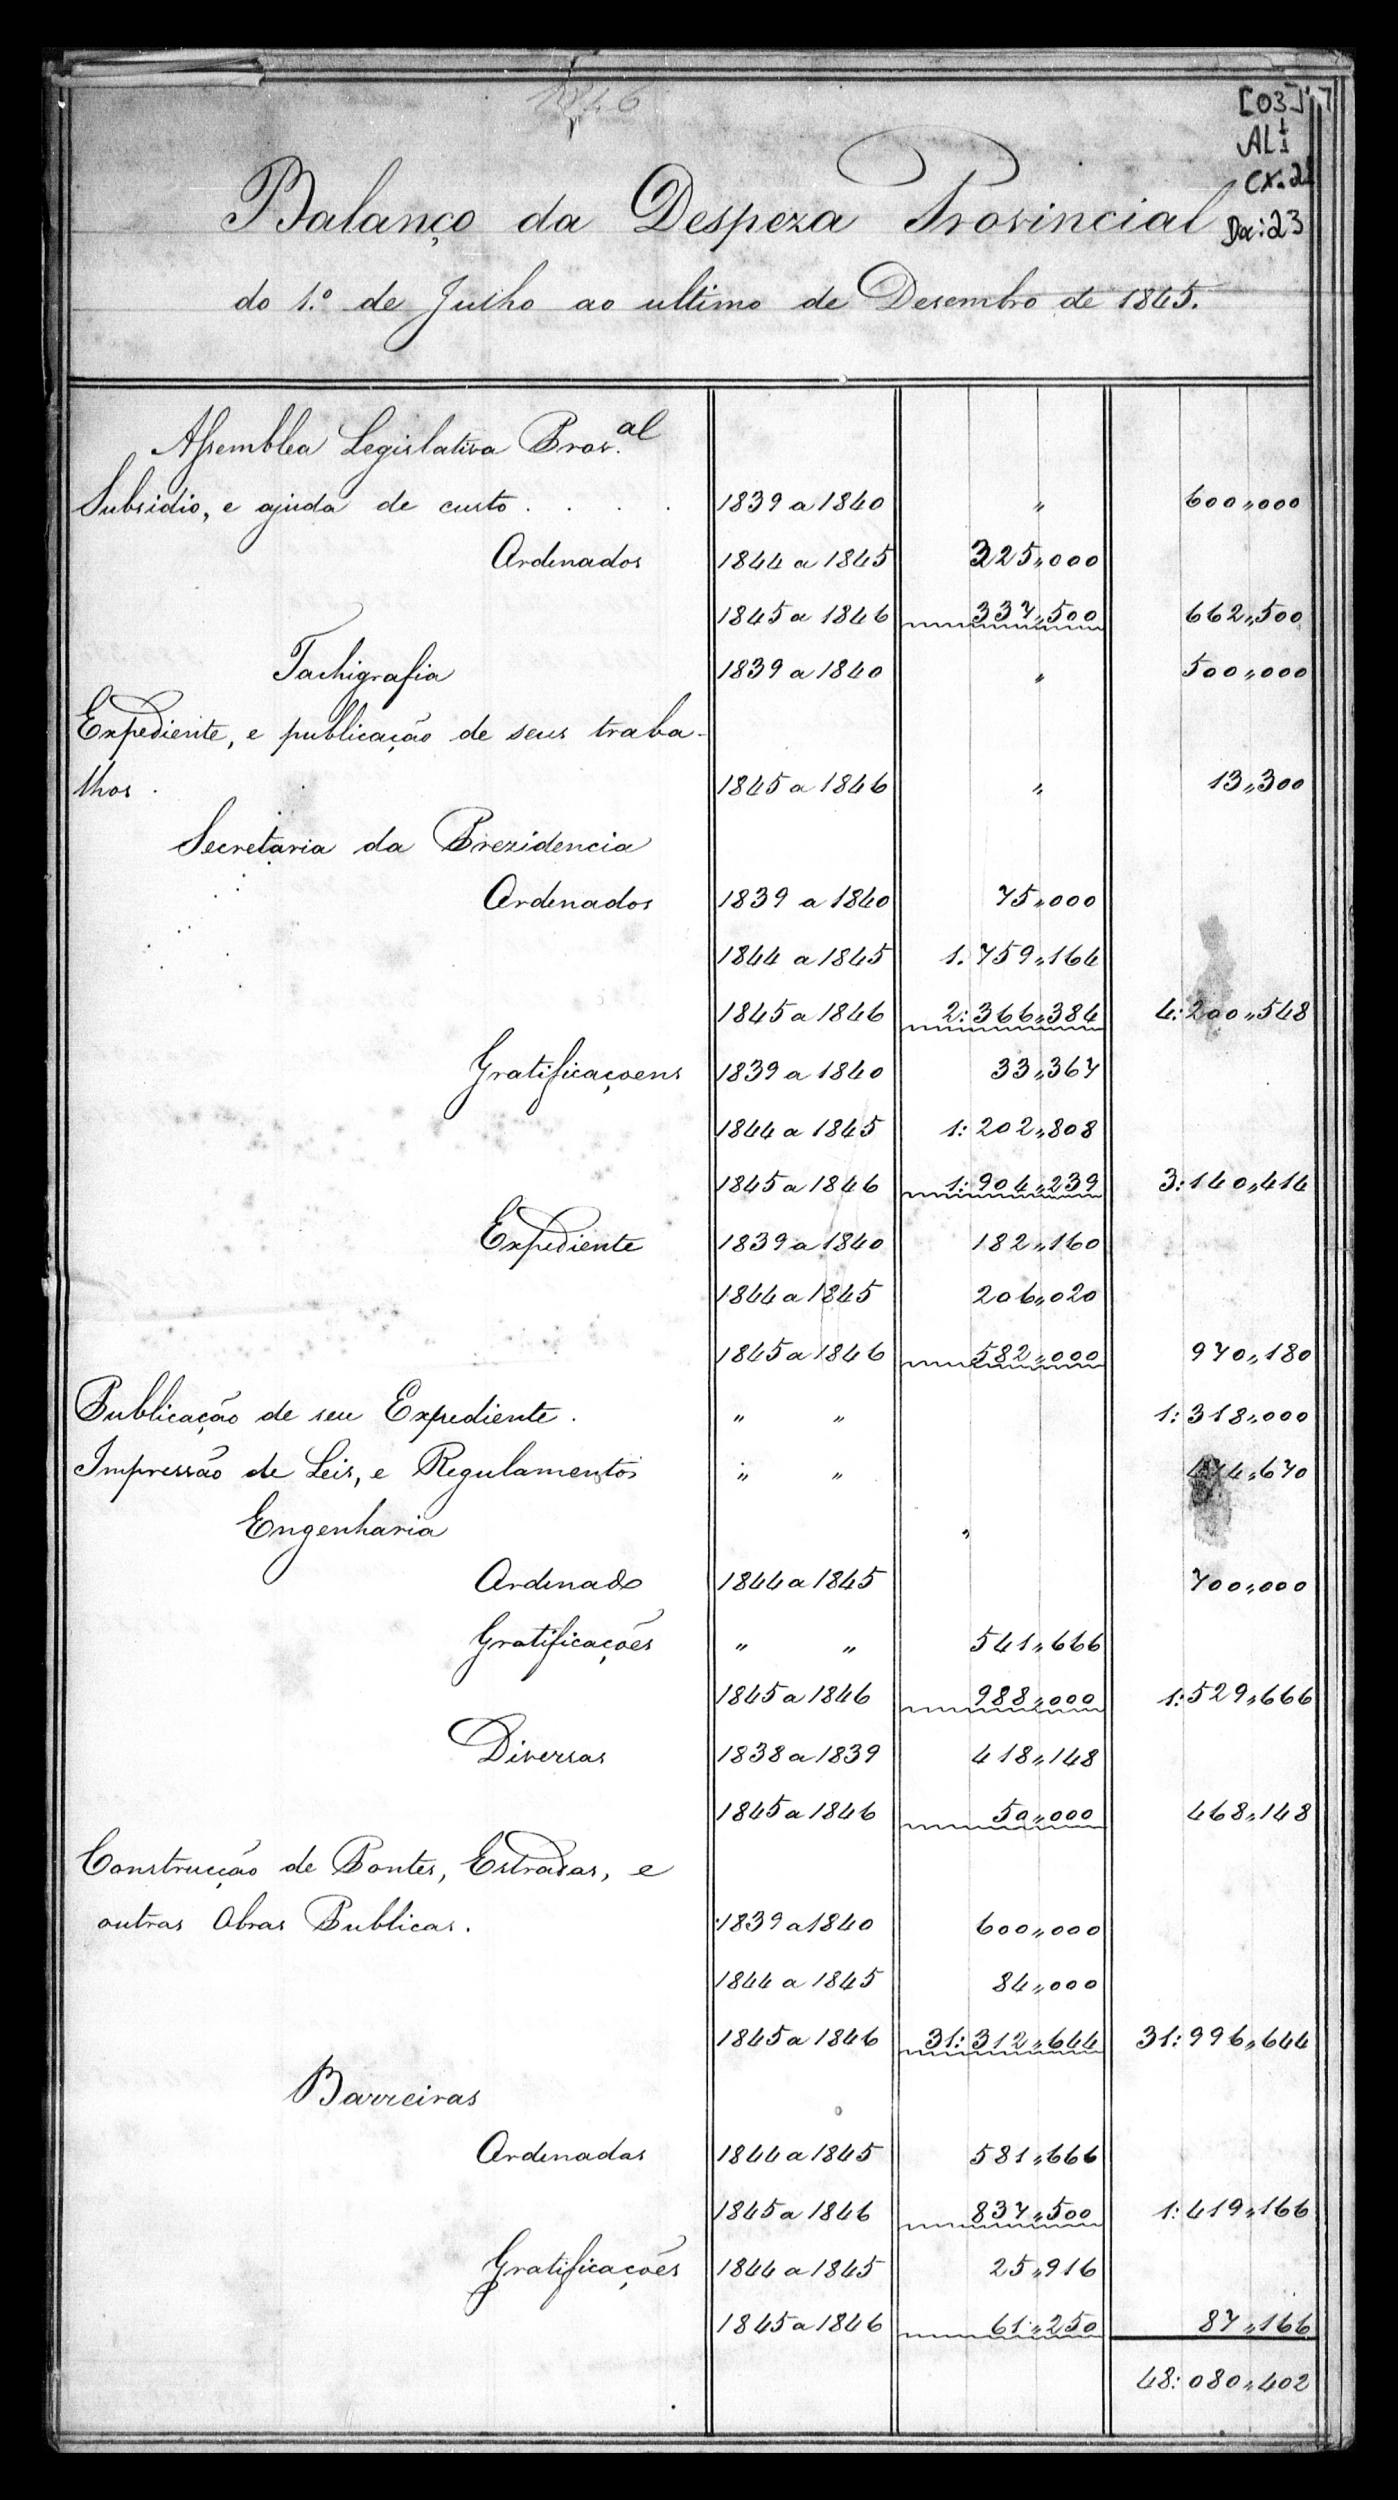 1846
[03] 17
AL1
cx. 21
Do: 23
Balanço da Despeza Provincial
do 1.º de Julho ao ultimo de Desembro de 1845.
Assemblea Legislativa Prov.al
Subsidio, e ajuda de custo . . . . 1839 a 1840 " 600,,000
Ordenados 1844 a 1845 325,,000
1845 a 1846 337,,500 662,,500
Tachigrafia 1839 a 1840 " 500,,000
Expediente, e publicação de seus traba-
lhos . 1845 a 1846 " 13,,300
Secretaria da Prezidencia
Ordenados 1839 a 1840 75,,000
1844 a 1845 1.759,,164
1845 a 1846 2:366,,384 4:200,,548
Gratificaçoens 1839 a 1840 33,,367
1844 a 1845 1:202,,808
1845 a 1846 1:904,,239 3:140,,414
Expediente 1839 a 1840 182,,160
1844 a 1845 206,,020
1845 a 1846 582,,000 970,,180
Publicação de seu Expediente . " " 1:318,,000
Impressão de Leis, e Regulamentos " " 474,,670
Engenharia "
Ordenado 1844 a 1845 700,,000
Gratificações " " 541,,666
1845 a 1846 988,,000 1:529,,666
Diversas 1838 a 1839 418,,148
1845 a 1846 50,,000 468,,148
Construcção de Pontes, Estradas, e
outras Obras Publicas. 1839 a 1840 600,,000
1844 a 1845 84,,000
1845 a 1846 31:312,,644 31:996,,644
Barreiras
Ordenados 1844 a 1845 581,,666
1845 a 1846 837,,500 1:419,,166
Gratificações 1844 a 1845 25,,916
1845 a 1846 61,,250 87,,166
48:080,,402